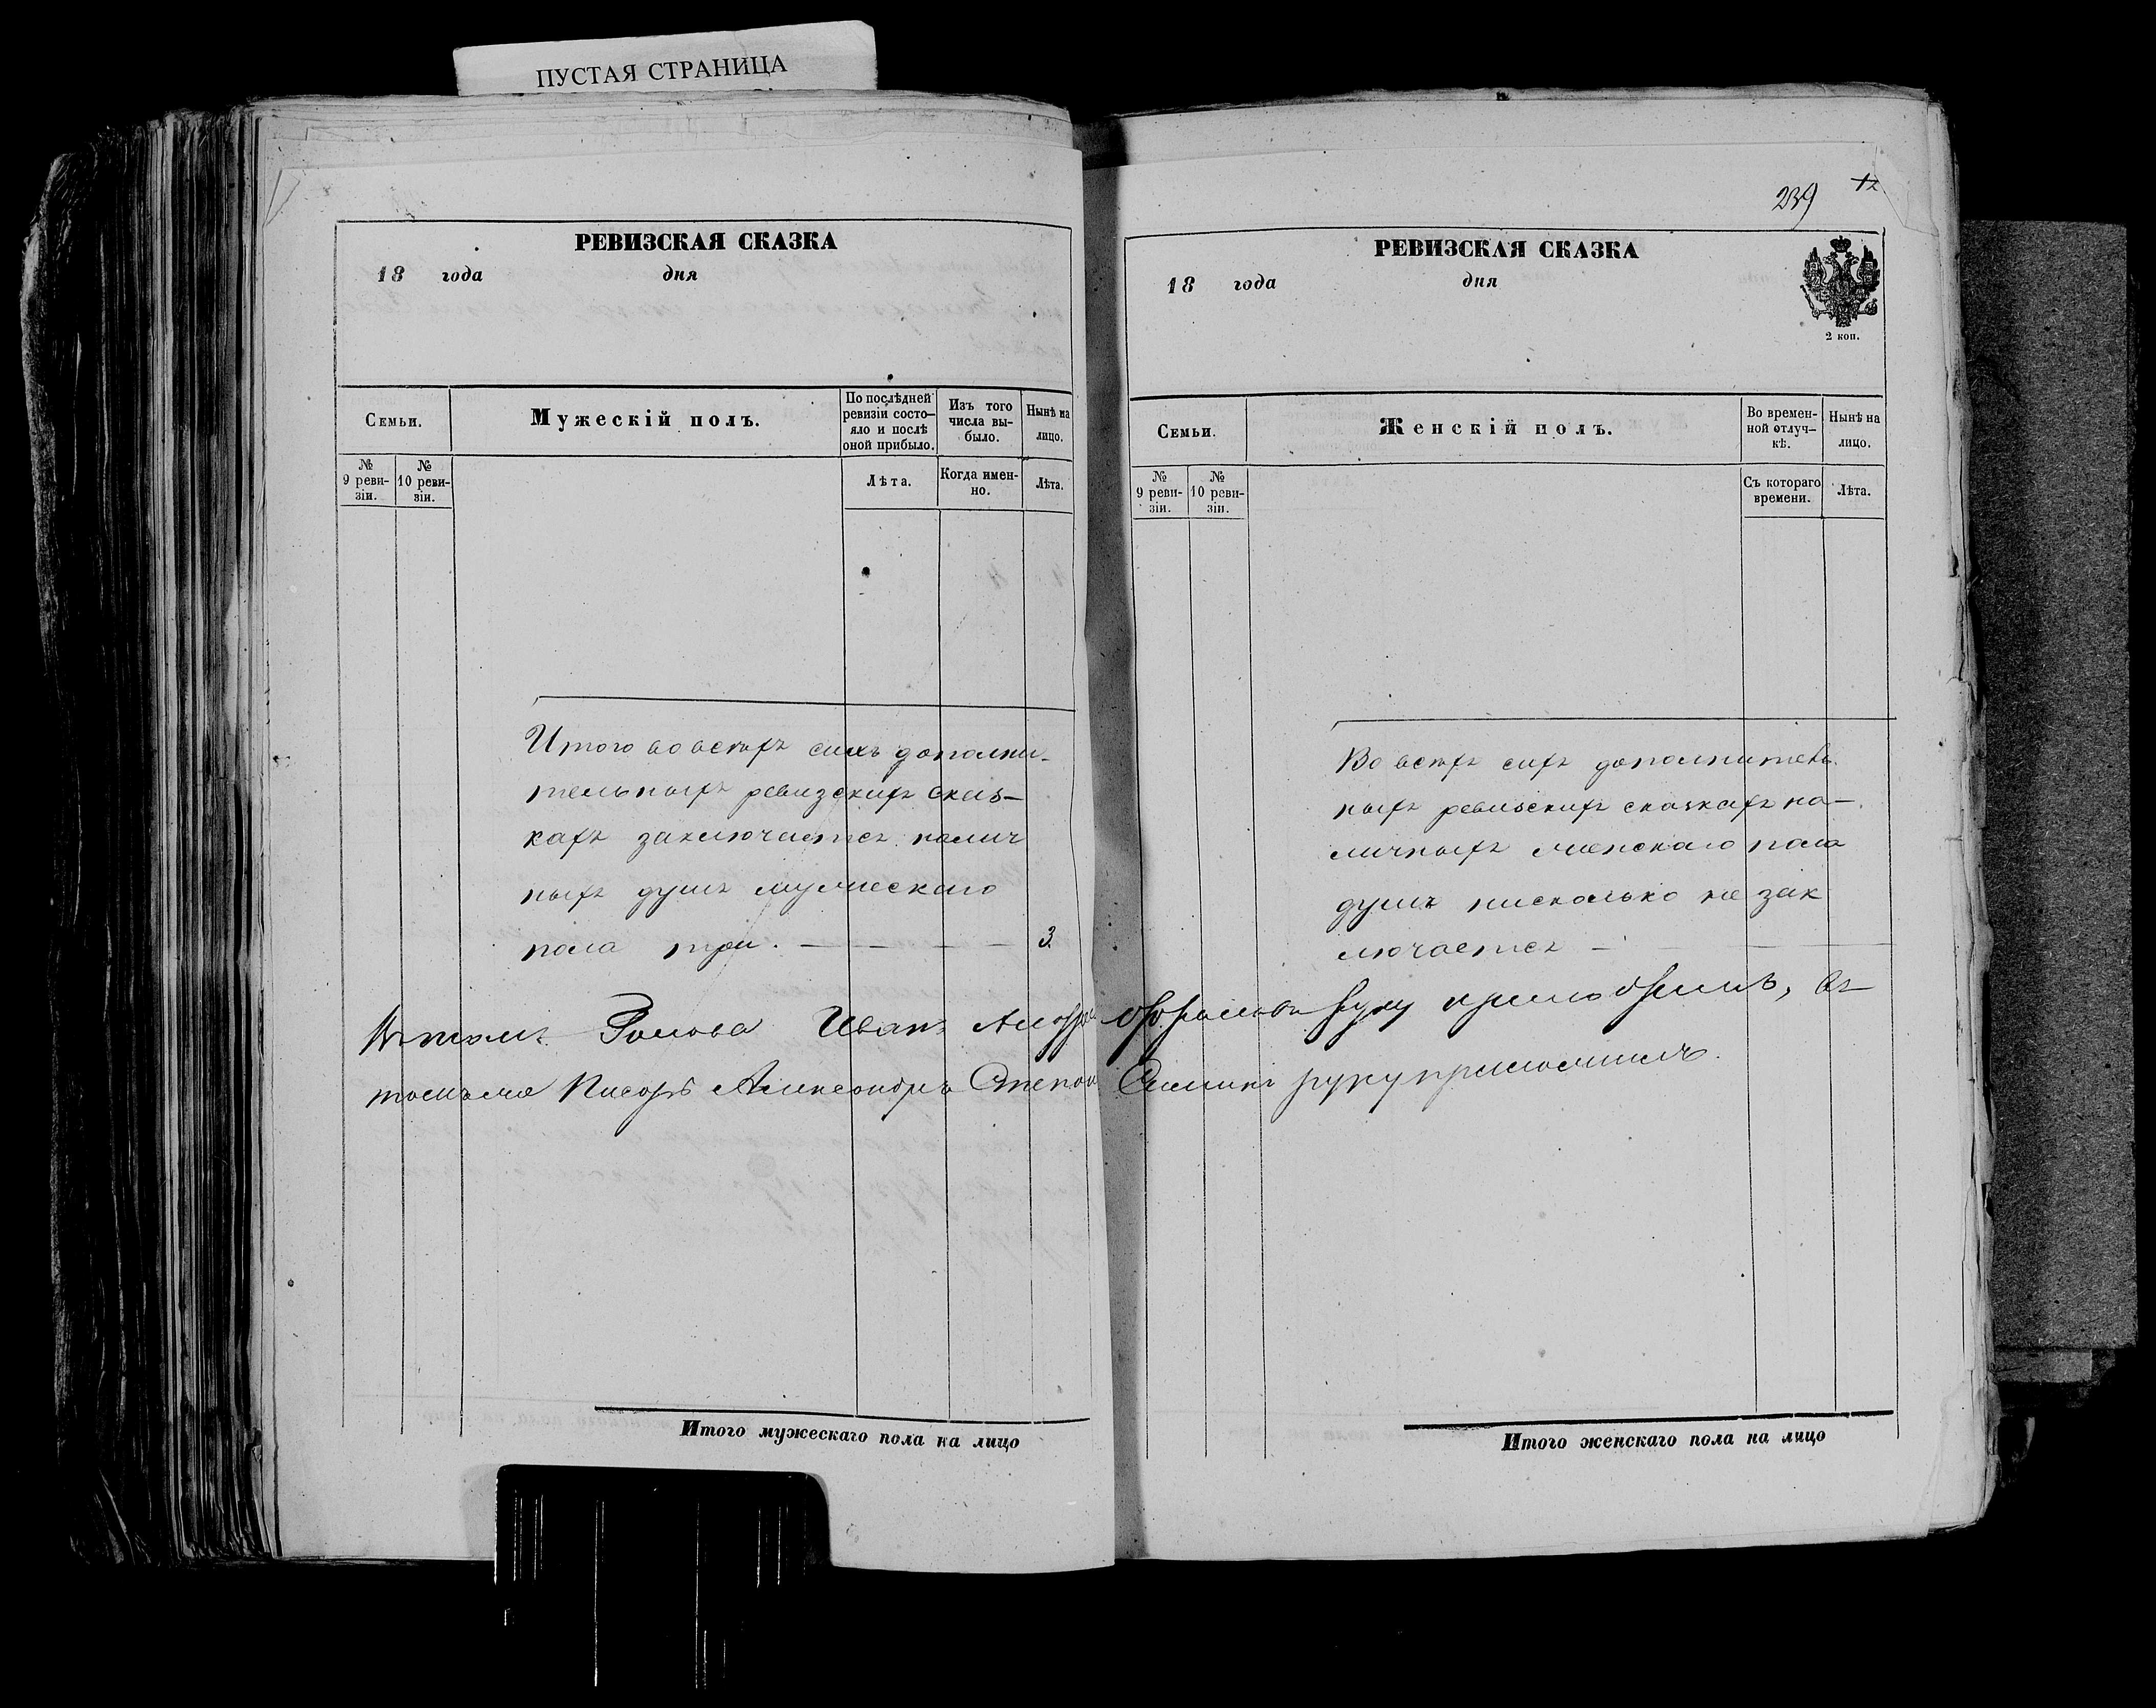 ПУСТАЯ СТРАНИЦА
РЕВИЗСКАЯ СКАЗКА
18 года дня
Семьи.
Мужескій полъ.
По послѣдней ревизіи состо-
яло и послѣ оной прибыло.
Изъ того числа вы-
было.
Нынѣ на лицо.
№ 9 реви-
зіи.
№ 10 реви-
зіи.
Лѣта.
Когда имен-
но.
Лѣта.
Итого во всѣхъ сихъ дополни-
тельныхъ ревизскихъ сказ-
кахъ заключается налич
ныхъ душъ мужескаго
пола три. — — — — 3.
Итого мужескаго пола на лицо
239 12
РЕВИЗСКАЯ СКАЗКА
18 года дня
2 коп.
Семьи.
Женскій полъ.
Во времен-
ной отлуч-
кѣ.
Нынѣ на лицо.
№ 9 реви-
зіи.
№ 10 реви-
зіи.
Съ котораго времени.
Лѣта.
Во всѣхъ сихъ дополнитель
ныхъ ревизскихъ сказкахъ на-
личныхъ женскаго пола
душъ нисколько не зак
лючается — — —
Въ томъ Голова Иванъ руку приложилъ, въ
томъ же Писарь Александръ Степан руку приложилъ.
Итого женскаго пола на лицо